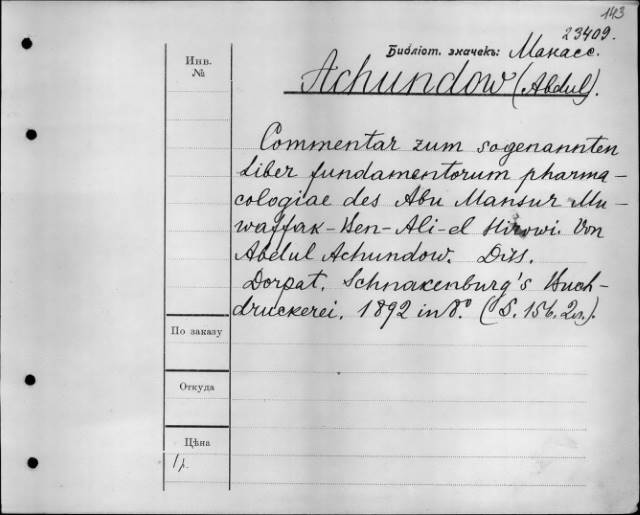 143
23409.
Библіот. значекъ: Макасс.
Инв.
№
Achundow (Abdul).
Commentar zum sogenannten
Liber fundamentorum pharma-
cologiae des Abu Mansur Mu-
waffak-Ben-Ali-el Hirowi. Von
Abdul Achundow. Diss.
Dorpat. Schnakenburg's Buch-
druckerei. 1892 in 8.° (S. 156.
По заказу
Откуда
Цѣна
1 р.